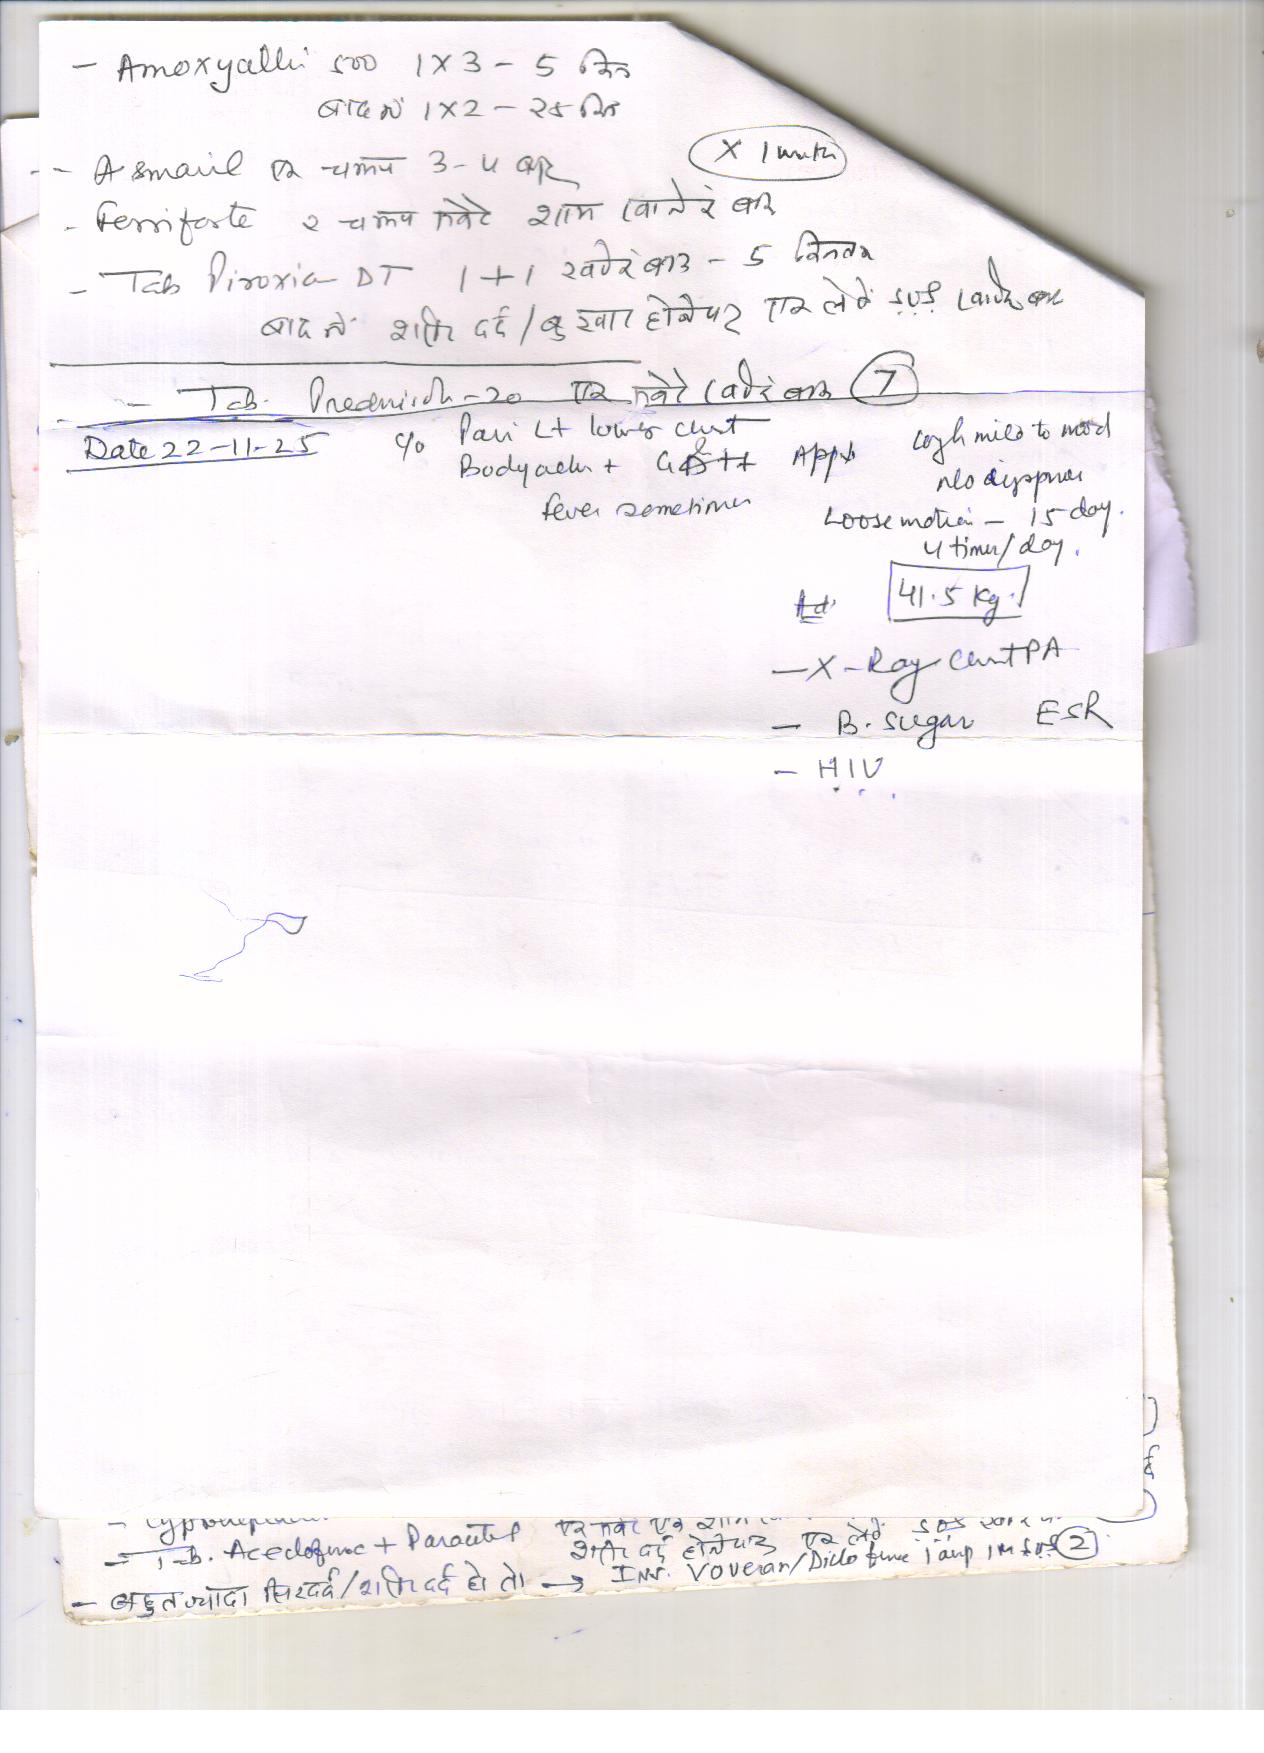 - Amoxycillin 500 1 X 3 - 5 दिन
बाद में 1 X 2 - २५ दिन
X 1 month
- Asmanil एक चम्मच 3-4 बार
- Ferriforte २ चम्मच सवेरे शाम खाने के बाद
- Tab Piroxia DT 1+1 खाने के बाद - 5 दिन तक
बाद में शरीर दर्द/बुखार होने पर एक लेवें SOS खाने के बाद
- Tab. Prednisol-20 एक सवेरे खाने के बाद 7
Date 22-11-25 c/o Pain Lt lower chest
Bodyache + G ++ App↓
fever sometimes
Cough mild to mod
No dyspnea
Loose motion - 15 day.
4 times/day.
Ad. 41.5 Kg.
- X-Ray Chest PA
- B. Sugar ESR
- HIV
- Cyproheptadine एक सवेरे एक शाम
- Tab. Aceclofenac + Paracetamol शरीर दर्द होने पर एक लेवें SOS खाने के
- बहुत ज्यादा सिरदर्द/शरीर दर्द हो तो → Inj. Voveran/Diclofenac 1 amp IM SOS 2